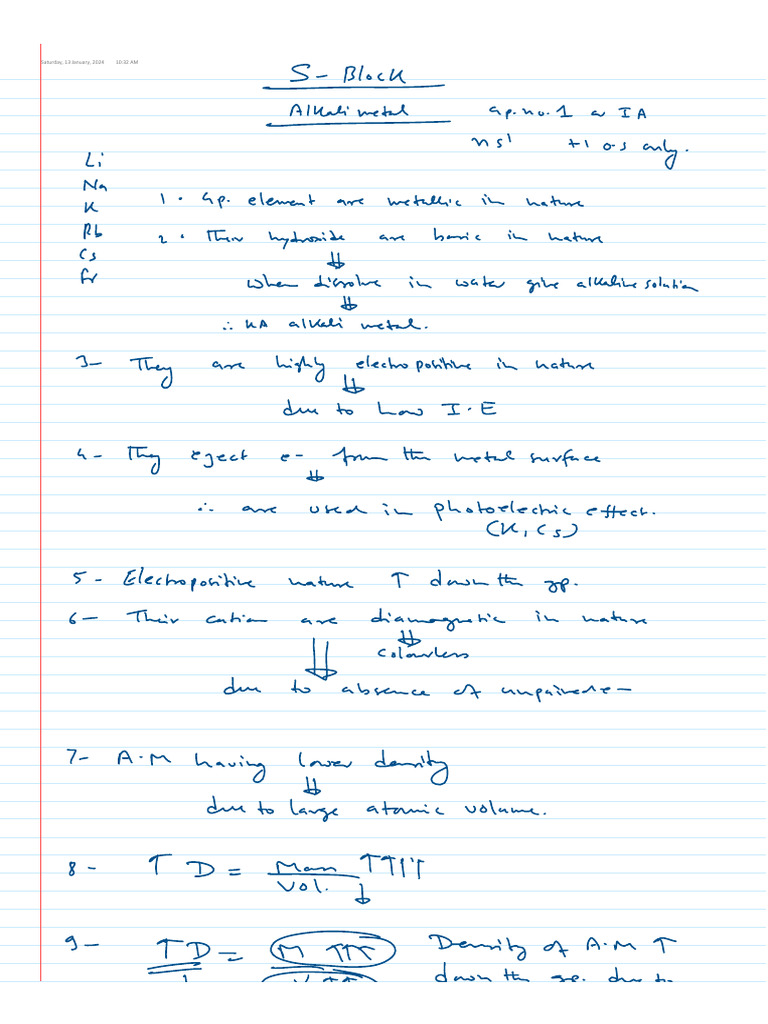 Saturday, 13 January, 2024 10:32 AM
S - Block
Alkali metal gp. no. 1 or IA
ns¹ +1 o.s only.
Li
Na
K
Rb
Cs
Fr
1. Gp. element are metallic in nature
2. Their hydroxide are basic in nature
⇓
when dissolve in water give alkaline solution
⇓
∴ KA alkali metal.
3- They are highly electropositive in nature
⇓
due to Low I.E
4- They eject e- from the metal surface
⇓
∴ are used in photoelectric effect.
(K, Cs)
5- Electropositive nature ↑ down the gp.
6- Their cation are diamagnetic in nature
⇓ ⇓
colourless
due to absence of unpaired e-
7- A.M having lower density
⇓
due to large atomic volume.
8- ↑ D = Mass ↑↑↑↑
Vol. ↓
9- ↑ D = M ↑↑↑ Density of A.M ↑
↓ V ↑↑ down the gp. due to